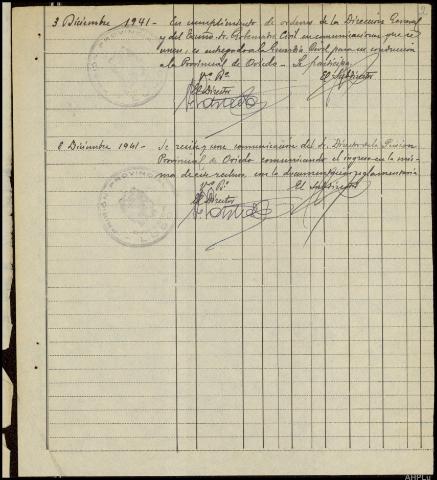 3 Diciembre 1941 - En cumplimiento de ordenes de la Dirección General
y del Excmo Sr. Gobernador Civil en comunicaciones que se
unen, es entregado a la Guardia Civil para su conducción
a la Provincial de Oviedo - Se participa
Vº Bº
El Director
El Subdirector
8 Diciembre 1941 - Se recibe una comunicación del Sr. Director de la Prisión
Provincial de Oviedo comunicando el ingreso en la mis-
ma de este recluso con la documentación reglamentaria
Vº Bº
El Director
El Subdirector
PRISIÓN PROVINCIAL
PRISIÓN PROVINCIAL
AHPLu